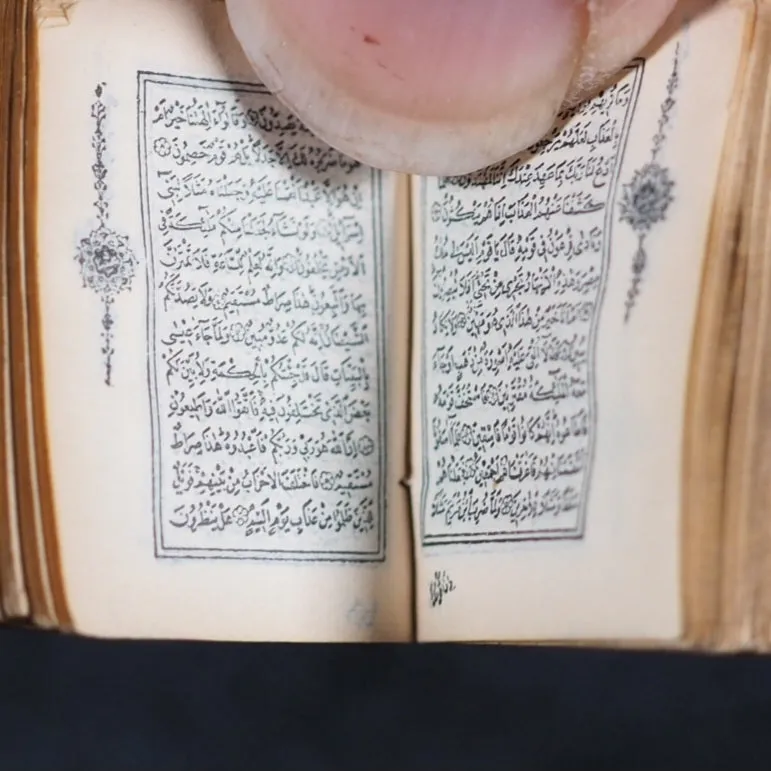 وَمَا نُرِيهِمْ
بِالْعَذَابِ لَعَلَّهُمْ يَرْجِعُونَ
ادْعُ لَنَا رَبَّكَ بِمَا عَهِدَ عِنْدَكَ إِنَّنَا لَمُهْتَدُونَ
كَشَفْنَا عَنْهُمُ الْعَذَابَ إِذَا هُمْ يَنْكُثُونَ
وَنَادٰى فِرْعَوْنُ فِي قَوْمِهِ قَالَ يَا قَوْمِ أَلَيْسَ لِي مُلْكُ
مِصْرَ وَهٰذِهِ الْأَنْهَارُ تَجْرِي مِنْ تَحْتِي أَفَلَا تُبْصِرُونَ
أَمْ أَنَا خَيْرٌ مِنْ هٰذَا الَّذِي هُوَ مَهِينٌ وَلَا يَكَادُ
يُبِينُ فَلَوْلَا أُلْقِيَ عَلَيْهِ أَسْوِرَةٌ مِنْ ذَهَبٍ أَوْ جَاءَ
مَعَهُ الْمَلٰئِكَةُ مُقْتَرِنِينَ فَاسْتَخَفَّ قَوْمَهُ
فَأَطَاعُوهُ إِنَّهُمْ كَانُوا قَوْمًا فَاسِقِينَ فَلَمَّا آسَفُونَا
انْتَقَمْنَا مِنْهُمْ فَأَغْرَقْنَاهُمْ أَجْمَعِينَ فَجَعَلْنَاهُمْ
سَلَفًا وَمَثَلًا لِلْآخِرِينَ وَلَمَّا ضُرِبَ ابْنُ مَرْيَمَ مَثَلًا
يَصِدُّونَ وَقَالُوا أَآلِهَتُنَا خَيْرٌ أَمْ
هُوَ مَا ضَرَبُوهُ لَكَ إِلَّا جَدَلًا بَلْ هُمْ قَوْمٌ خَصِمُونَ
إِنْ هُوَ إِلَّا عَبْدٌ أَنْعَمْنَا عَلَيْهِ وَجَعَلْنَاهُ مَثَلًا لِبَنِي
إِسْرَائِيلَ وَلَوْ نَشَاءُ لَجَعَلْنَا مِنْكُمْ مَلٰئِكَةً فِي
الْأَرْضِ يَخْلُفُونَ وَإِنَّهُ لَعِلْمٌ لِلسَّاعَةِ فَلَا تَمْتَرُنَّ
بِهَا وَاتَّبِعُونِ هٰذَا صِرَاطٌ مُسْتَقِيمٌ وَلَا يَصُدَّنَّكُمُ
الشَّيْطَانُ إِنَّهُ لَكُمْ عَدُوٌّ مُبِينٌ وَلَمَّا جَاءَ عِيسٰى
بِالْبَيِّنَاتِ قَالَ قَدْ جِئْتُكُمْ بِالْحِكْمَةِ وَلِأُبَيِّنَ لَكُمْ
بَعْضَ الَّذِي تَخْتَلِفُونَ فِيهِ فَاتَّقُوا اللّٰهَ وَأَطِيعُونِ
إِنَّ اللّٰهَ هُوَ رَبِّي وَرَبُّكُمْ فَاعْبُدُوهُ هٰذَا صِرَاطٌ
مُسْتَقِيمٌ فَاخْتَلَفَ الْأَحْزَابُ مِنْ بَيْنِهِمْ فَوَيْلٌ
لِلَّذِينَ ظَلَمُوا مِنْ عَذَابِ يَوْمٍ أَلِيمٍ هَلْ يَنْظُرُونَ